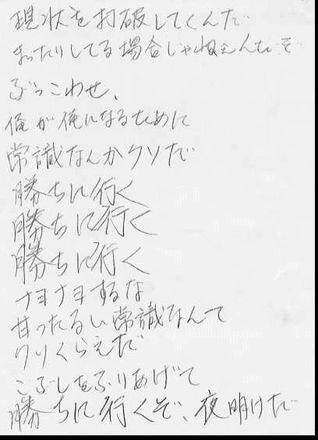 現状を打破してくんだ
まったりしてる場合じゃねぇんだぞ
ぶっこわせ、
俺が俺になるために
常識なんかクソだ
勝ちに行く
勝ちに行く
勝ちに行く
ナヨナヨするな
甘ったるい常識なんて
クソくらえだ
こぶしをふりあげて
勝ちに行くぞ、夜明けだ